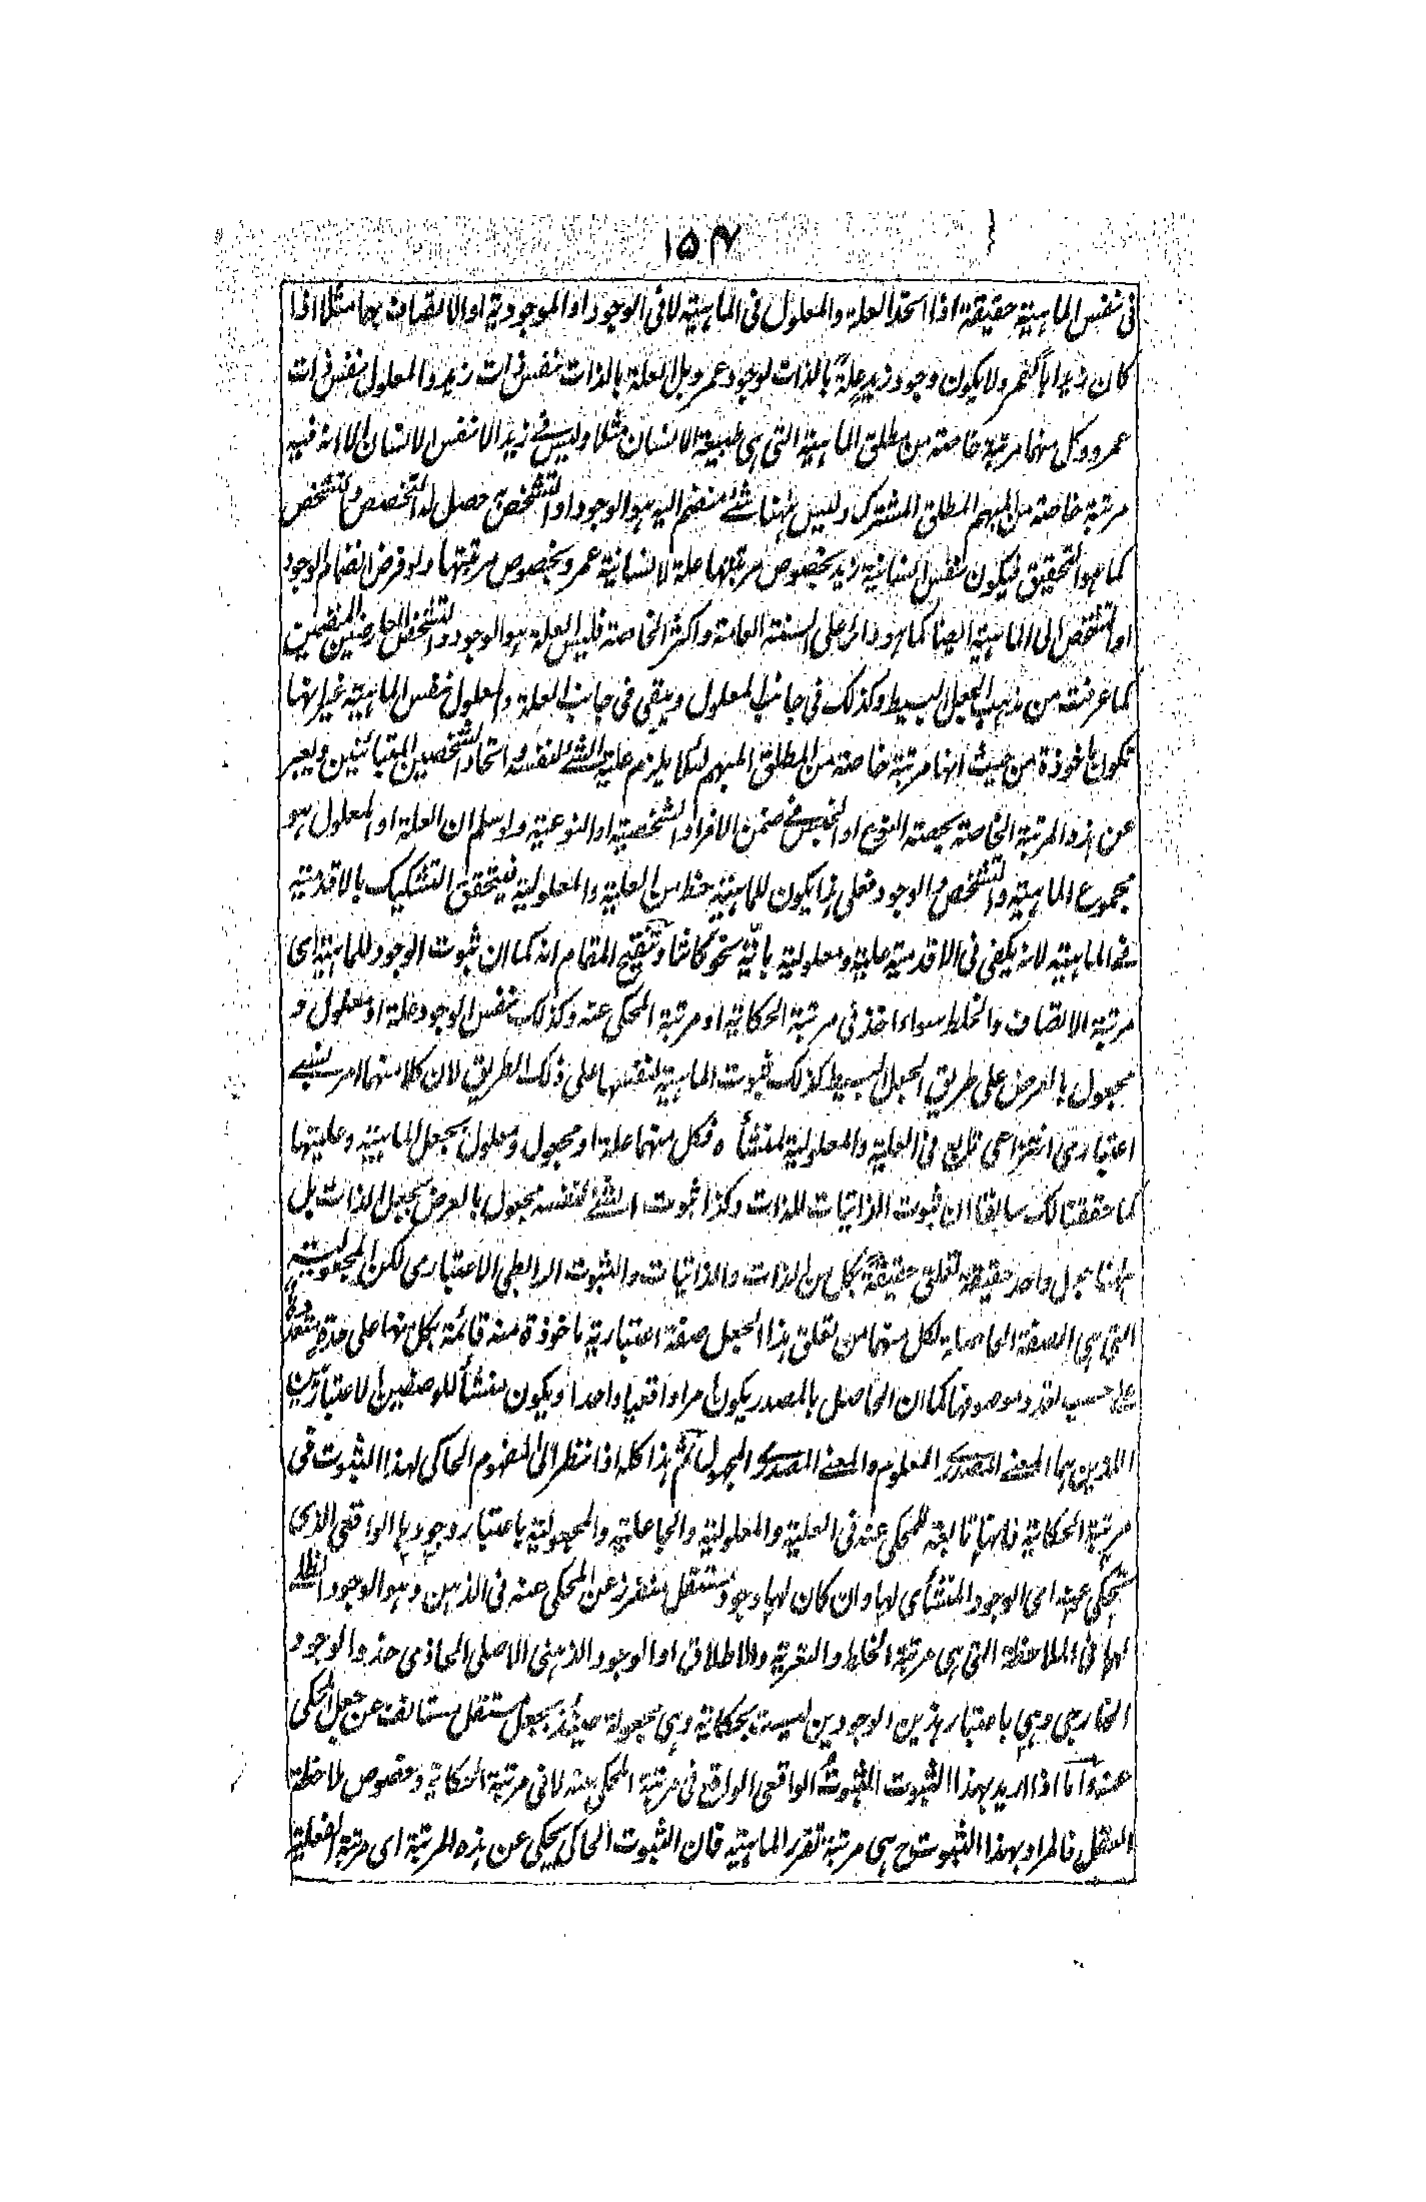 ١٥٧
فى نفس الماهية حقيقة اذا اتحد العلة والمعلول فى الماهية لا فى الوجود او الموجودية او الاتصاف بهما مثلا اذا
كان زيد ابا لعمرو لا يكون وجود زيد علة بالذات لوجود عمرو بل العلة بالذات نفس ذات زيد والمعلول نفس ذات
عمرو وكل منهما مرتبة خاصة من مطلق الماهية التى هى طبيعة الانسان مثلا وليس فى زيد الا نفس الانسان الا انه فيه
مرتبة خاصة من المبهم المطلق المشترك وليس ههنا شئ منضم اليه هو الوجود او التشخص حصل له التخصص والتشخص
كما هو التحقيق فيكون نفس انسانية زيد بخصوص مرتبتها علة لانسانية عمرو بخصوص مرتبتها ولو فرض انضمام الوجود
او التشخص الى الماهية ايضا كما هو دائر على السنة العامة واكثر الخاصة فليس العلة هو الوجود والتشخص العارضين المنضمين
كما عرفته من مذهب الجعل البسيط وكذلك فى جانب المعلول ويبقى فى جانب العلة والمعلول نفس الماهية غير انها
تكون ماخوذة من حيث انها مرتبة خاصة من المطلق المبهم لئلا يلزم علية الشئ لنفسه واتحاد الشخصين المتبائنين ويعبر
عن هذه المرتبة الخاصة بحصة النوع او الجنس فى ضمن الافراد الشخصية او النوعية ولو سلم ان العلة او المعلول هو
مجموع الماهية والتشخص والوجود فعلى هذا يكون للماهية حظ من العلية والمعلولية فيتحقق التشكيك بالاقدمية
فى الماهية لانه يكفى فى الاقدمية علية ومعلولية باىّ نحو كانتا وتنقيح المقام انه كما ان ثبوت الوجود للماهية اى
مرتبة الاتصاف والخلط سواء اخذ فى مرتبة الحكاية او مرتبة المحكى عنه وكذلك نفس الوجود علة او معلول و
مجعول بالعرض على طريق الجعل البسيط كذلك ثبوت الماهية لنفسها على ذلك الطريق لان كلا منهما امر نسبى
اعتبارى انتزاعى تابع فى العلية والمعلولية لمنشأه فكل منهما علة او مجعول ومعلول بجعل الماهية وعليتها
كما حققنا لك سابقا ان ثبوت الذاتيات للذات وكذا ثبوت الشئ لنفسه مجعول بالعرض بجعل الذات بل
ههنا جعل واحد حقيقة تعلق حقيقة بكل من الذات والذاتيات والثبوت الرابطى الاعتبارى لكن المجعولية
التى هى الصفة الحاصلة لكل منهما من تعلق هذا الجعل صفة اعتبارية ماخوذة منه قائمة بكل منها على حدة متعددة
على حسب تعدد موصوفها كما ان الحاصل بالمصدر يكون امرا واقعيا واحدا ويكون منشأ للوصفين الاعتباريين
اللذين هما المعنى المصدرى المعلوم والمعنى المصدرى المجهول ثم هذا كله اذا نظر الى المفهوم الحاكى لهذا الثبوت فى
مرتبة الحكاية فانها تابعة للمحكى عنه فى العلية والمعلولية والجاعلية والمجعولية باعتبار وجودها الواقعى الذى
تحكى عنه اى الوجود المنشأى لها وان كان لها وجود مستقل منفرز عن المحكى عنه فى الذهن وهو الوجود الظلى
لها فى الملاحظة التى هى مرتبة الخلط والتعرية والاطلاق او الوجود الذهنى الاصلى المحاذى حذو الوجود
الخارجى وهى باعتبار هذين الوجودين ليست بحكاية وهى مجعولة حينئذ بجعل مستقل مستانف عن جعل المحكى
عنه واما اذا اريد بهذا الثبوت الثبوت الواقعى الواقع فى مرتبة المحكى عنه لا فى مرتبة الحكاية وخصوص ملاحظة
العقل فالمراد بهذا الثبوت ح هى مرتبة تقرر الماهية فان الثبوت الحاكى يحكى عن هذه المرتبة اى مرتبة الفعلية